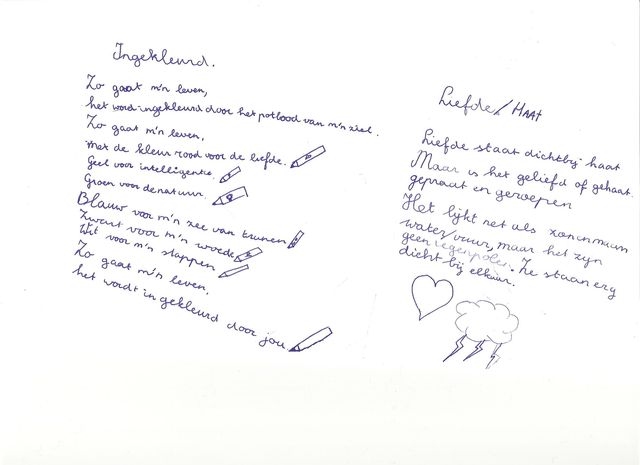 Ingekleurd.
Zo gaat m'n leven,
het word ingekleurd door het potlood van m'n ziel.
Zo gaat m'n leven,
met de kleur rood voor de liefde.
Geel voor intelligentie
Groen voor de natuur.
Blauw voor m'n zee van tranen
Zwart voor m'n woede
Wit voor m'n stappen
Zo gaat m'n leven,
het wordt ingekleurd door jou
Liefde/HAAT
Liefde staat dichtbij haat
Maar is het geliefd of gehaat.
gepraat en geroepen
Het lijkt net als zon en maan
water/vuur, maar het zijn
geen tegenpolen. Ze staan erg
dicht bij elkaar.